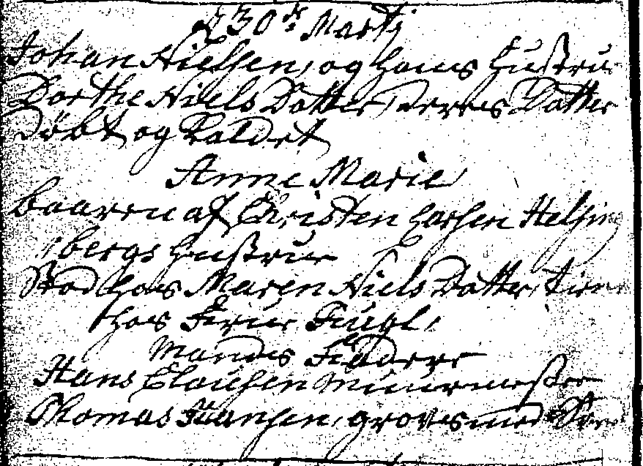 d 30te Martj
Johan Nielsen, og hans Hustrue
Dorthe Niels Datter, deres Datter
Døbt og Kaldet
Anne Marie
baaren af Christen Larsen Helsing
bergs Hustrue
Stod hos Maren Niels Datter, tien
hos
Mands Faddere
Hans Clausen Muurmester
Thomas Hansen, grovsmed